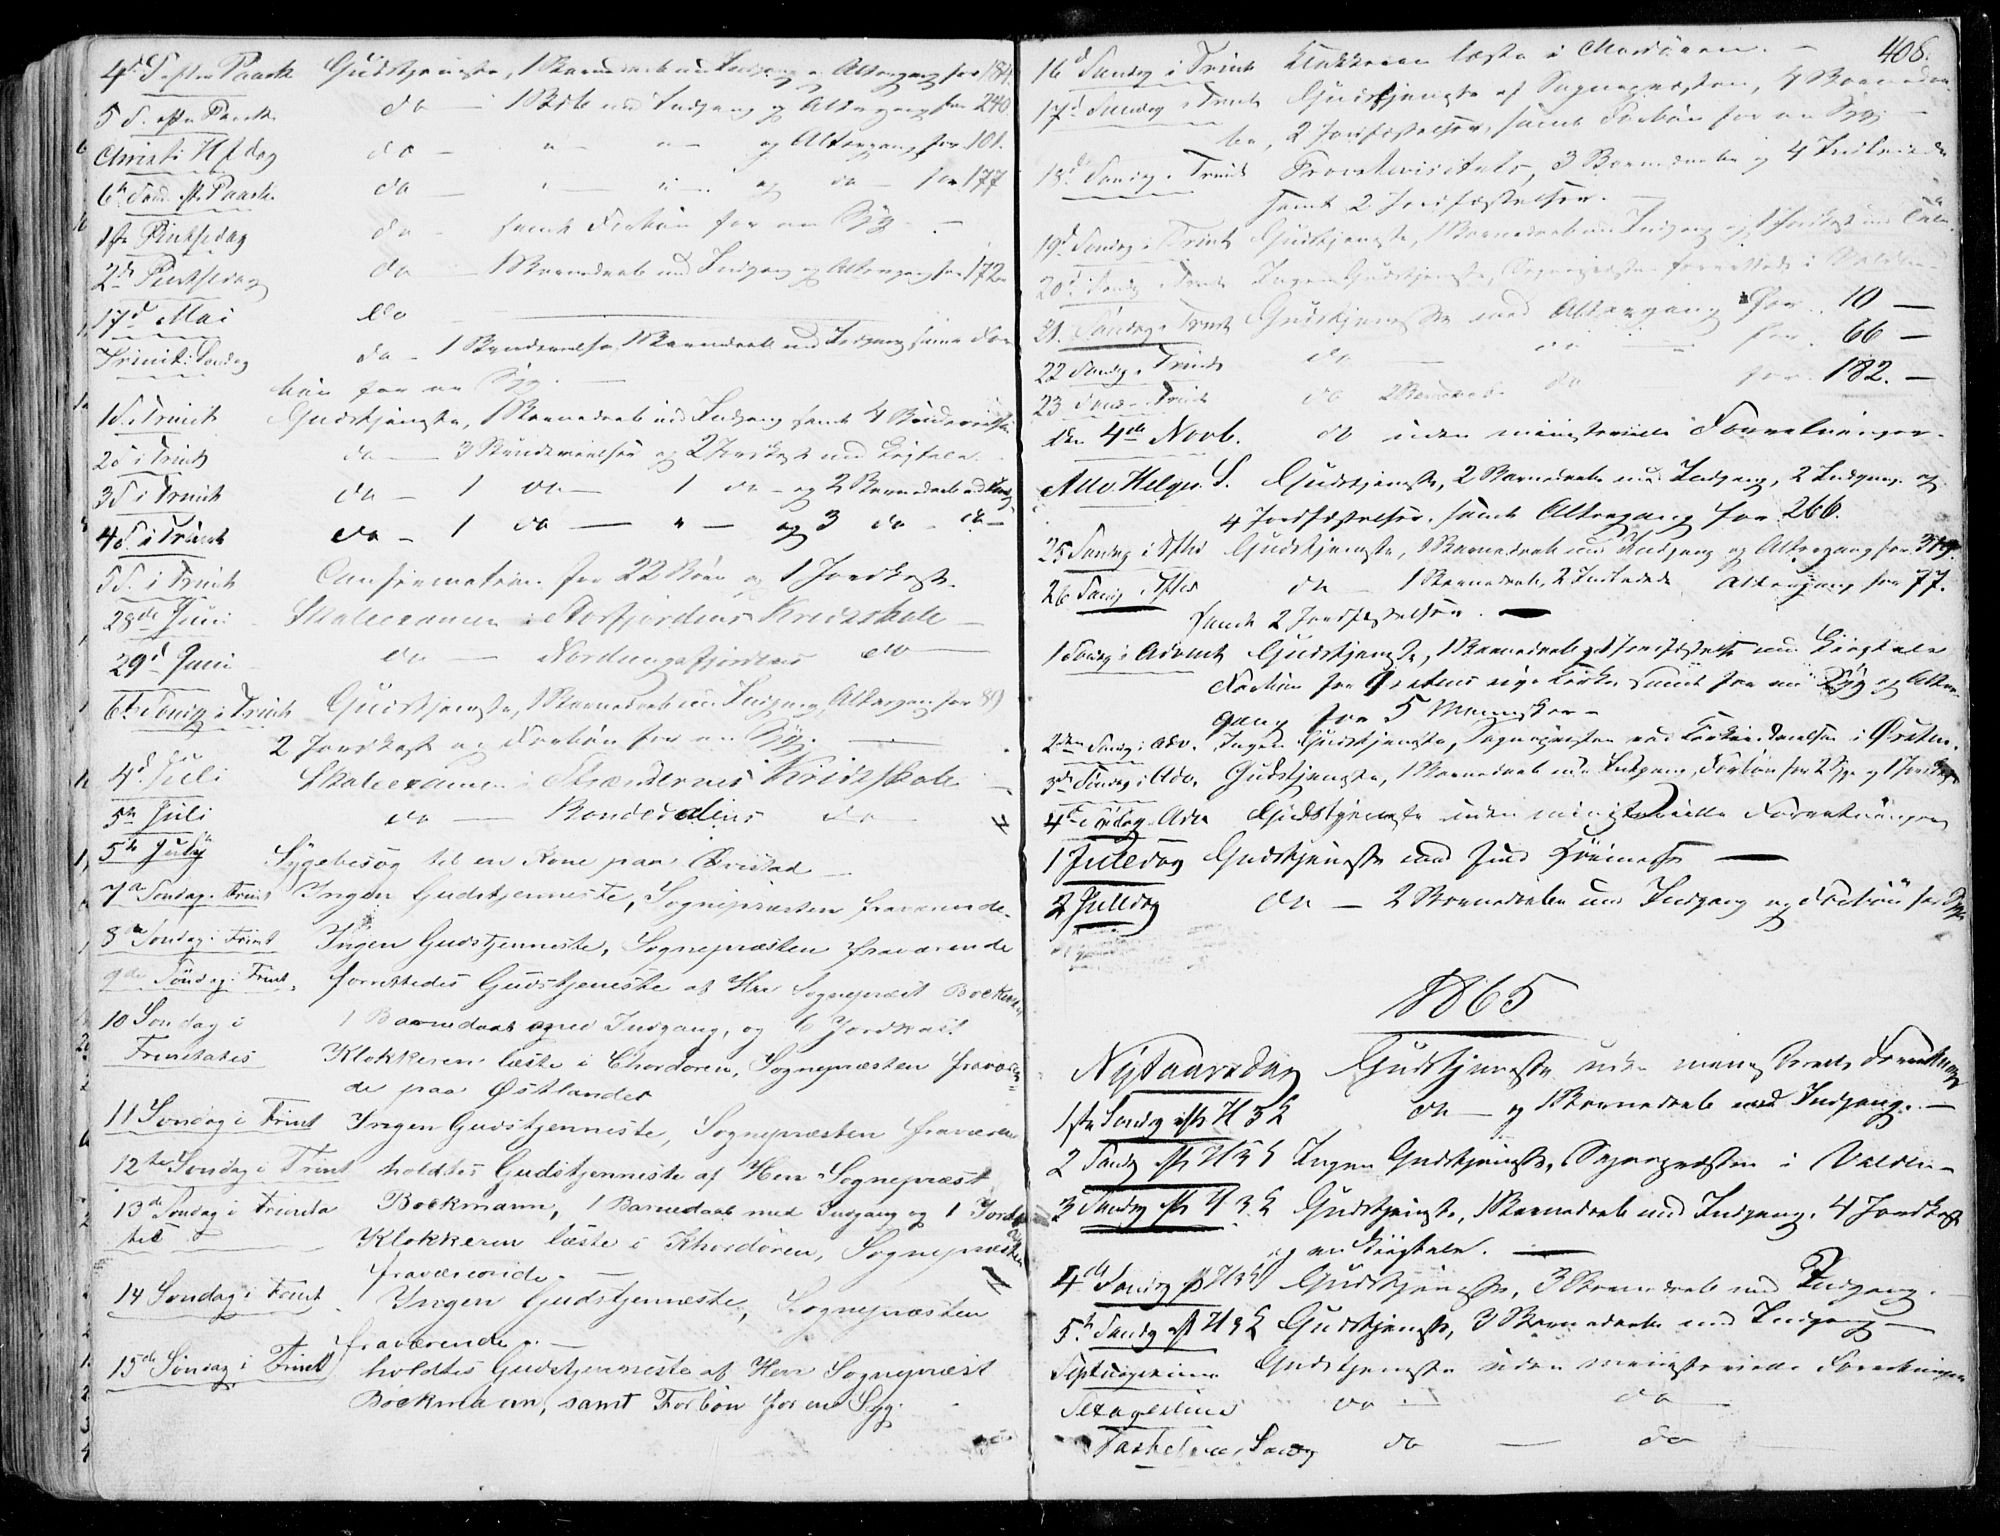 4d S. efter Paaske Gudstjeneste, 1 Barnedaab med Indgang og Altergang for 184.
5 S. eft. Paaske do — 1 Bdb med Indgang og Altergang for 240
Christi Hf.dag do — " — " — og Altergang for 101.
6te Sønd. eft. Paaske do — " — " — og do — for 177
1ste Pintsedag do — samt Forbøn for en Syg. —
2de Pintsedag do — 1 Barnedaab med Indgang og Altergang for 172
17d Mai do —
Trinit: Søndag do — 1 Barnedaab med Indgang samt For-
bøn for en Syg. —
1 S. i Trinit Gudstjeneste, 1 Barnedaab med Indgang samt 4
2 S i Trinit do — 3 og 2 Jordkast med Ligtale.
3 S i Trinit do — 1 do — 1 do — og 2 Barnedaab med Indg.
4 S. i Trinit do — 1 do — " — og 3 do — do —
5 S. i Trinit Confirmation for 22 Børn og 1 Jordkast.
28de Juni Skoleexamen i Storfjordens Kredsskole —
29d Juni do — Nordangsfjordens do —
6te Søndag i Trinit Gudstjeneste, 1 Barnedaab med Indgang, Altergang for 89
2 Jordkast og Forbøn for en Syg. —
4d Juli Skoleexamen i Strandernes Kredsskole —
5te Juli do — Bondedalens do —
5te July Sygebesøg til en Kone paa Ørstad —
7de Søndag i Trinit Ingen Gudstjenneste, Sognepræsten fraværende.
8de Søndag i Trinit Ingen Gudstjenneste, Sognepræsten fraværende
9de Søndag i Trinit. forrettedes Gudstjeneste af Herr Sognepræst Bockman
10 Søndag i 1 Barnedaab med Indgang, og 6 Jordkast
Trinitatis Klokkeren læste i Chordøren, Sognepræsten fraværen-
de paa Østlandet
11 Søndag i Trinit Ingen Gudstjenneste, Sognepræsten fraværen
12te Søndag i Trinit holdtes Gudstjenneste af Herr Sognepræst
13d Søndag i Trinita Bockmann, 1 Barnedaab med Indgang og 1 Jordk
tis Klokkeren læste i Khordøren, Sognepræsten
fraværende. —
14 Søndag i Trinit Ingen Gudstjenneste, Sognepræsten
fraværende. —
15de Søndag i Trinit holdtes Gudstjenneste af Herr Sognepræst
Bockmann, samt Forbøn for en Syg.
408.
16d Søndag i Trinit Klokkeren læste i Chordøren. —
17d Søndag i Trinit Gudstjeneste af Sognepræsten, 4 Barnedaa-
be, 2 Jordfæstelser, samt Forbøn for en Syg. —
18d Søndag i Trinit Provstevisitats, 3 Barnedaabe og 4 Indledede
samt 2 Jordfæstelser. —
19d Søndag i Trinit Gudstjeneste, 1 Barnedaab med Indgang og 1 Jordkast med Tale.
20d Søndag i Trinit Ingen Gudstjeneste, Sognepræsten forrettede i Volden
21. Søndag i Trinit Gudstjeneste med Altergang for 10 —
22 Søndag i Trinit do — do — for 66 —
23 Sønd. i Trinit do 2 Barnedaab do for 182. —
den 4de Novb. do uden ministerielle Forretninger.
Alle Helgen S. Gudstjeneste, 2 Barnedaab med Indgang, 2 Indgange og
4 Jordfæstelser, samt Altergang for 266.
25 Søndag i Trinit Gudstjeneste, 1 Barnedaab med Indgang og Altergang for 319.
26 Søndag i Trinit do — 1 Barnedaab, 2 Indledede Altergang for 77.
samt 2 Jordfæstelser. —
1 Søndag i Advent Gudstjeneste, 1 Barnedaab og 1 Jordfæstelse med Ligtale
Forbøn for Ørstens nye Kirke samt for en Syg og Alter-
gang for 5 Mennesker —
2den Søndag i Adv. Ingen Gudstjeneste, Sognepræsten ved Kirkeindvielsen i Ørsten.
3de Søndag i Adv. Gudstjeneste, 1 Barnedaab uden Indgang, Forbøn for 2 Syge og 1 Jordkast
4de Søndag Adv Gudstjeneste uden ministerielle Forretninger
1 Juledag Gudstjeneste med
2 Juledag do — 2 Barnedaabe med Indgang og Forbøn for Syge
1865
Nytaarsdag Gudstjeneste uden ministerielle Forretninger
1ste Søndag eft H 3 K do — og 1 Barnedaab med Indgang. —
2 Søndag eft H 3 K Ingen Gudstjeneste, Sognepræsten i Volden —
3 Søndag eft H 3 K Gudstjeneste, 1 Barnedaab med Indgang, 4 Jordkast
og en Ligtale. —
4de Søndag eft H 3 K Gudstjeneste, 3 Barnedaab med Indgang. —
5te Søndag eft H 3 K Gudstjeneste, 3 Barnedaabe med Indgang —
Septuagesima Gudstjeneste uden ministerielle Forretninger
Sexagesima do — do —
Fastelavns Søndag do — do